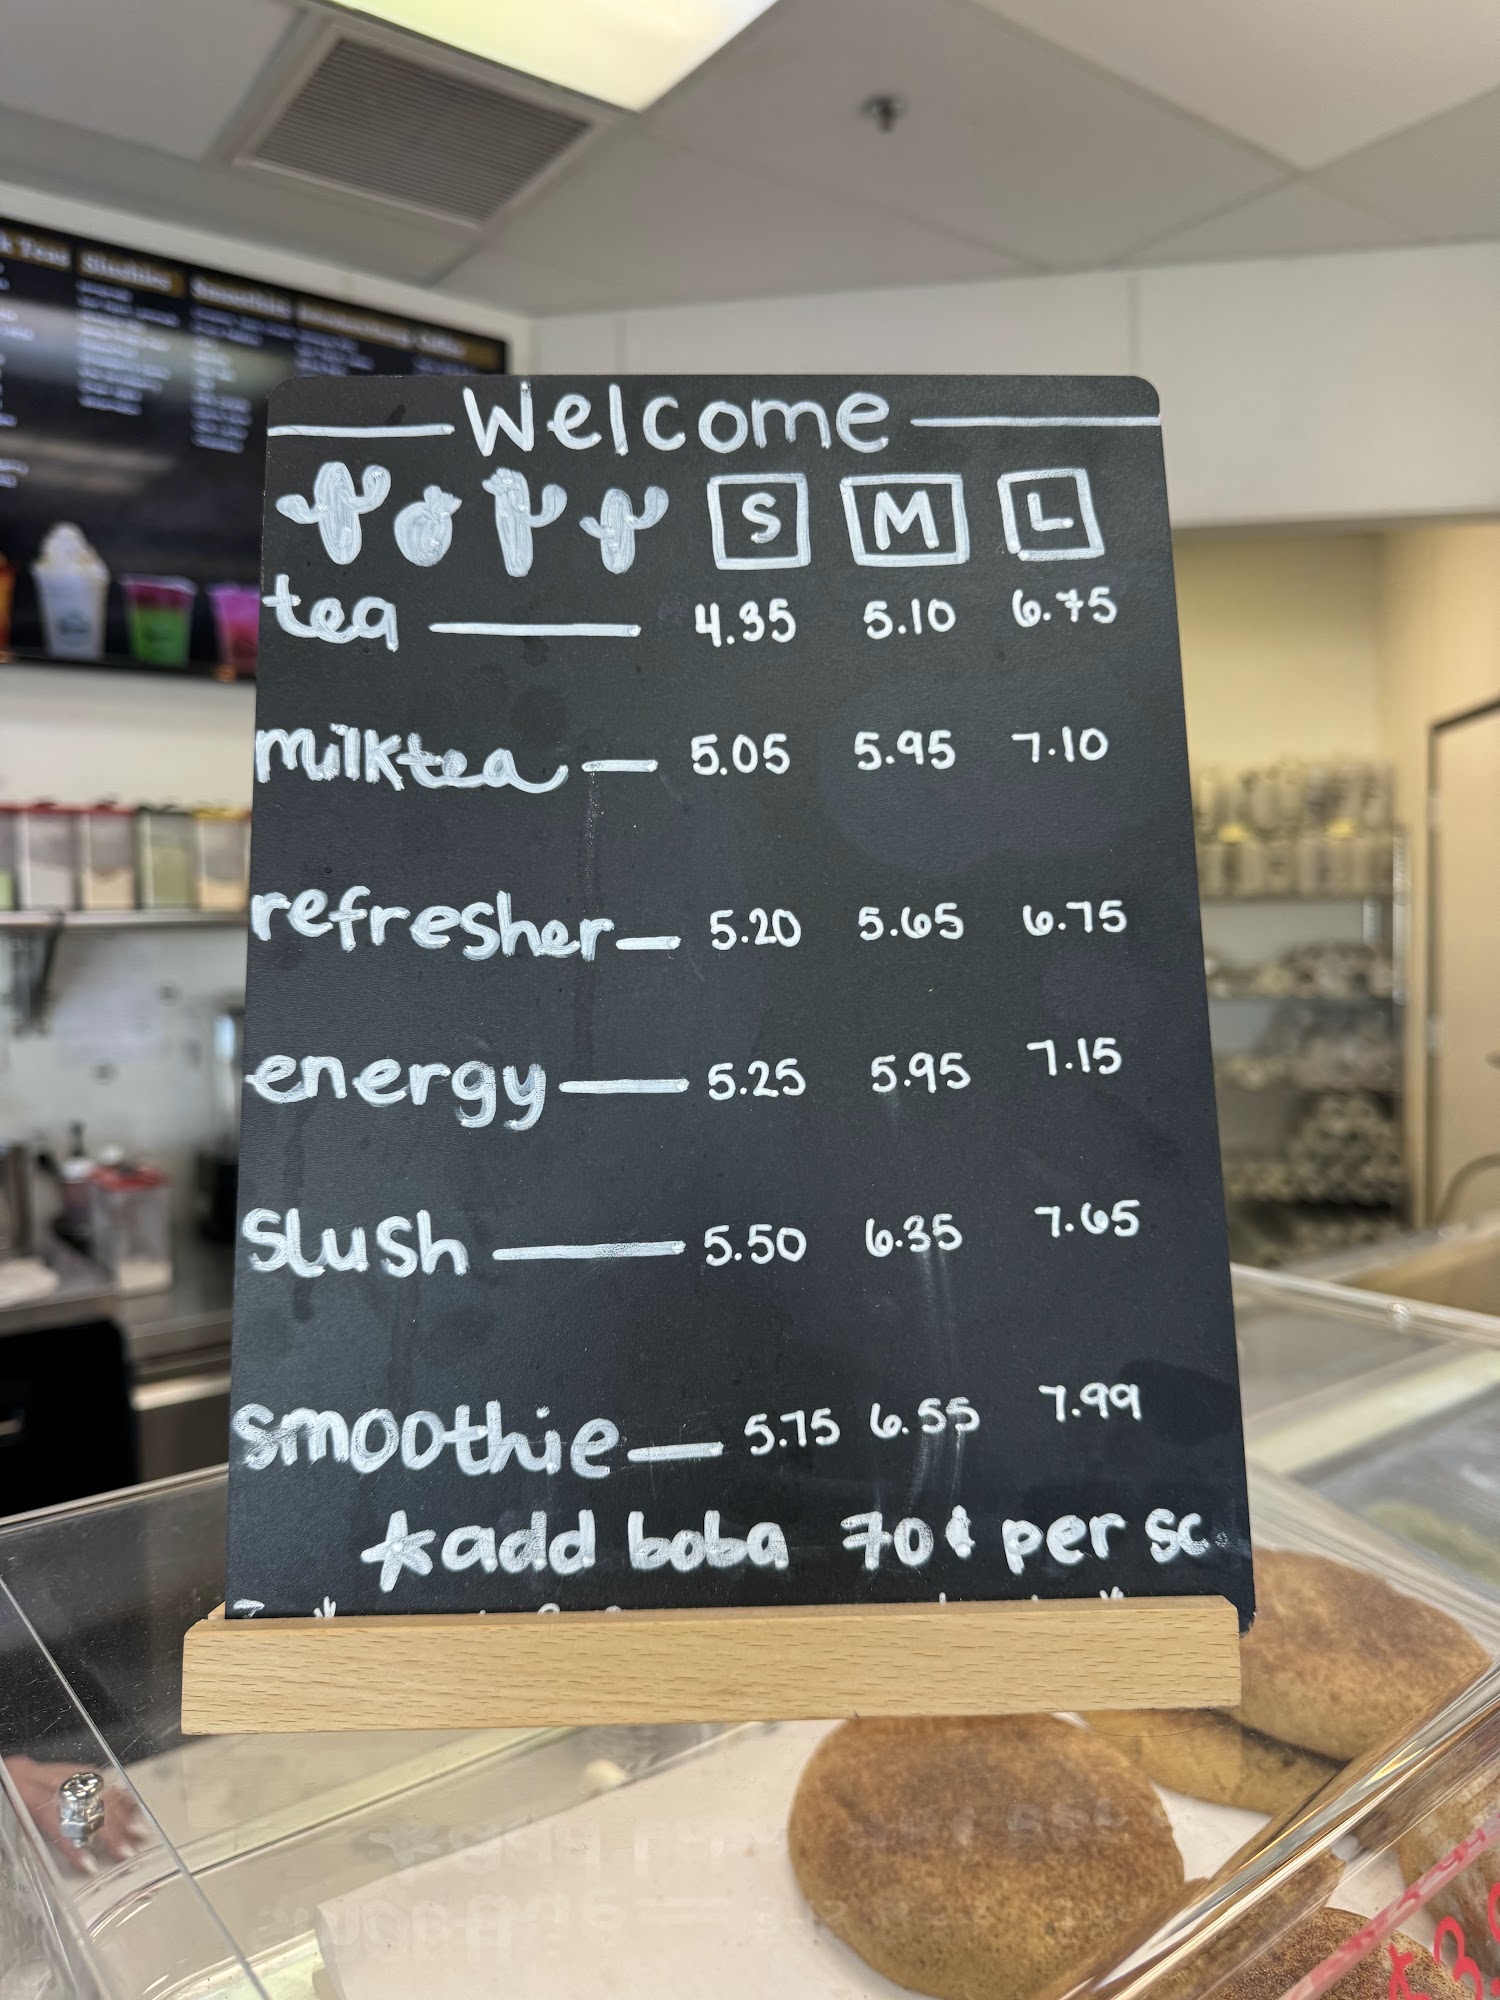 Teas Slushies Smoothie
Welcome
S M L
tea 4.35 5.10 6.75
milktea 5.05 5.95 7.10
refresher 5.20 5.65 6.75
energy 5.25 5.95 7.15
slush 5.50 6.35 7.65
smoothie 5.75 6.55 7.99
*add boba 70¢ per sc